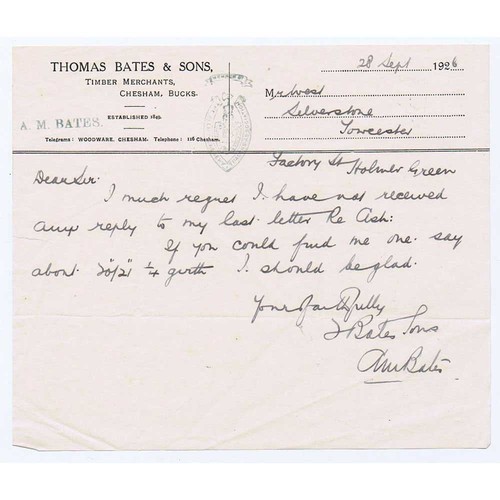 THOMAS BATES & SONS,
TIMBER MERCHANTS,
CHESHAM, BUCKS.
ESTABLISHED 1840.
A. M. BATES.
Telegrams: WOODWARE, CHESHAM. Telephone: 116 Chesham.
28 Sept 1926
Mr West
Silverstone
Towcester
Factory St Holmer Green
Dear Sir.
I much regret I have not received
any reply to my last letter Re Ash:
If you could find me one say
about 20/21 ¼ girth I should be glad.
Yours faithfully
T Bates Sons
AM Bates